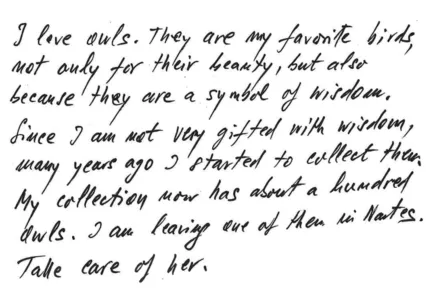 I love owls. They are my favorite birds,
not only for their beauty, but also
because they are a symbol of wisdom.
Since I am not very gifted with wisdom,
many years ago I started to collect them.
My collection now has about a hundred
owls. I am leaving one of them in Nantes.
Take care of her.